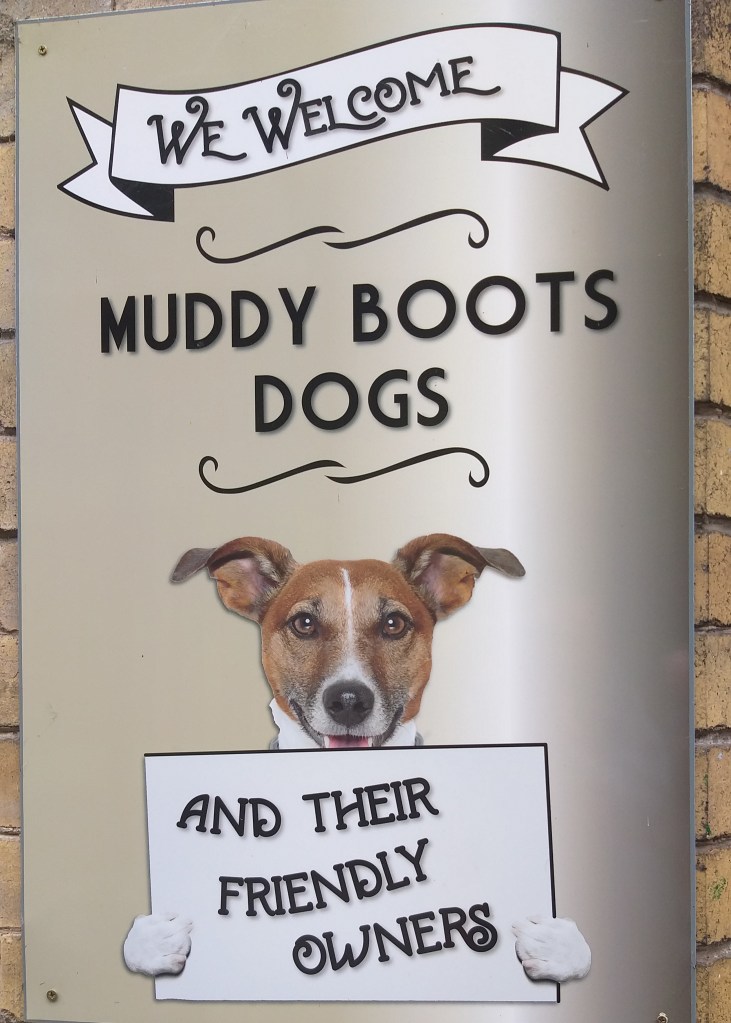 WE WELCOME
MUDDY BOOTS
DOGS
AND THEIR
FRIENDLY
OWNERS